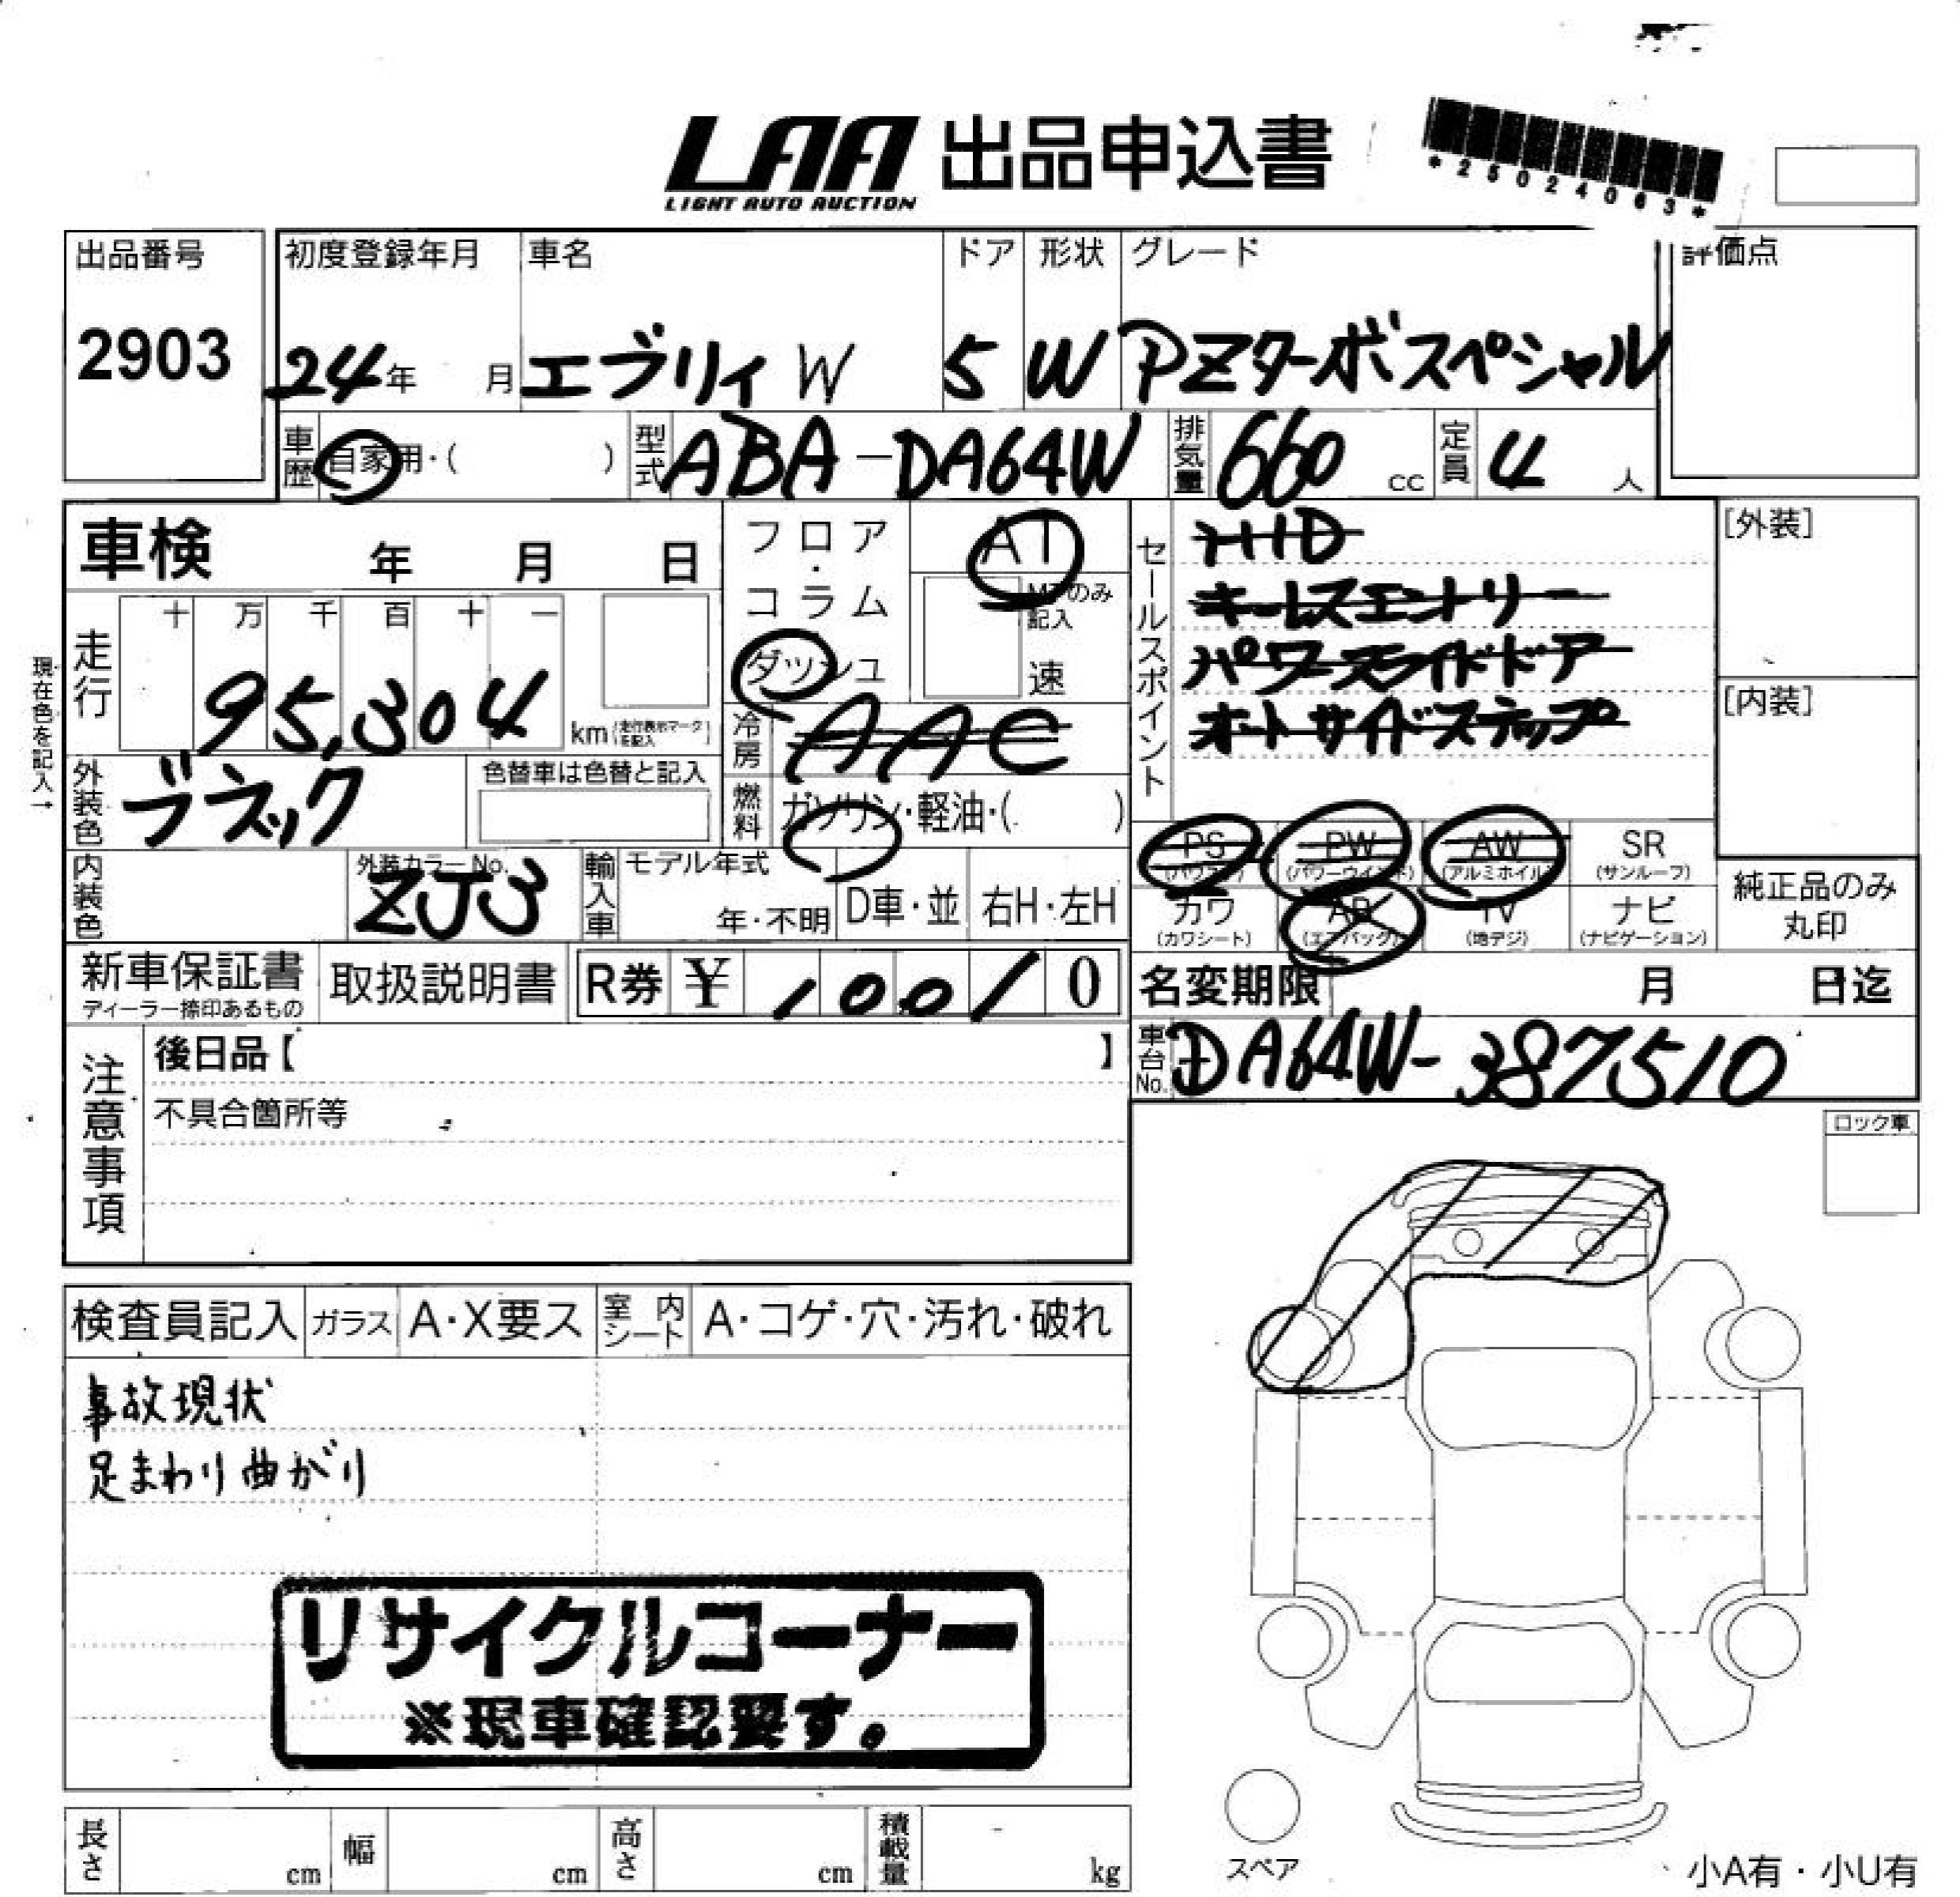 LAA 出品申込書
LIGHT AUTO AUCTION
*25024063*
出品番号
2903
初度登録年月 車名 ドア 形状 グレード 評価点
24年 月 エブリィW 5 W PZターボスペシャル
車歴 自家用・( ) 型式 ABA-DA64W 排気量 660 cc 定員 4 人
車検 年 月 日
フロア・コラム・ダッシュ
AT
MTのみ記入
速
走行
十 万 千 百 十 一
95,304 km (走行表示マークを記入)
現在色を記入→
冷房 AAC
外装色 ブラック
色替車は色替と記入
燃料 ガソリン・軽油・( )
内装色
外装カラーNo. ZJ3
輸入車 モデル年式
年・不明 D車・並 右H・左H
セールスポイント
HID
キーレスエントリー
パワースライドドア
オートサイドステップ
[外装]
[内装]
PS PW AW SR
(パワステ) (パワーウインド) (アルミホイル) (サンルーフ)
カワ AB TV ナビ
(カワシート) (エアバッグ) (地デジ) (ナビゲーション)
純正品のみ
丸印
新車保証書
ディーラー捺印あるもの
取扱説明書
R券 ¥ 1001 0
名変期限 月 日迄
車台No. DA64W-387510
注意事項
後日品【 】
不具合箇所等
ロック車
検査員記入 ガラス A・X要ス 室内シート A・コゲ・穴・汚れ・破れ
事故現状
足まわり曲がり
リサイクルコーナー
※現車確認要す。
スペア
長さ cm 幅 cm 高さ cm 積載量 kg
小A有・小U有